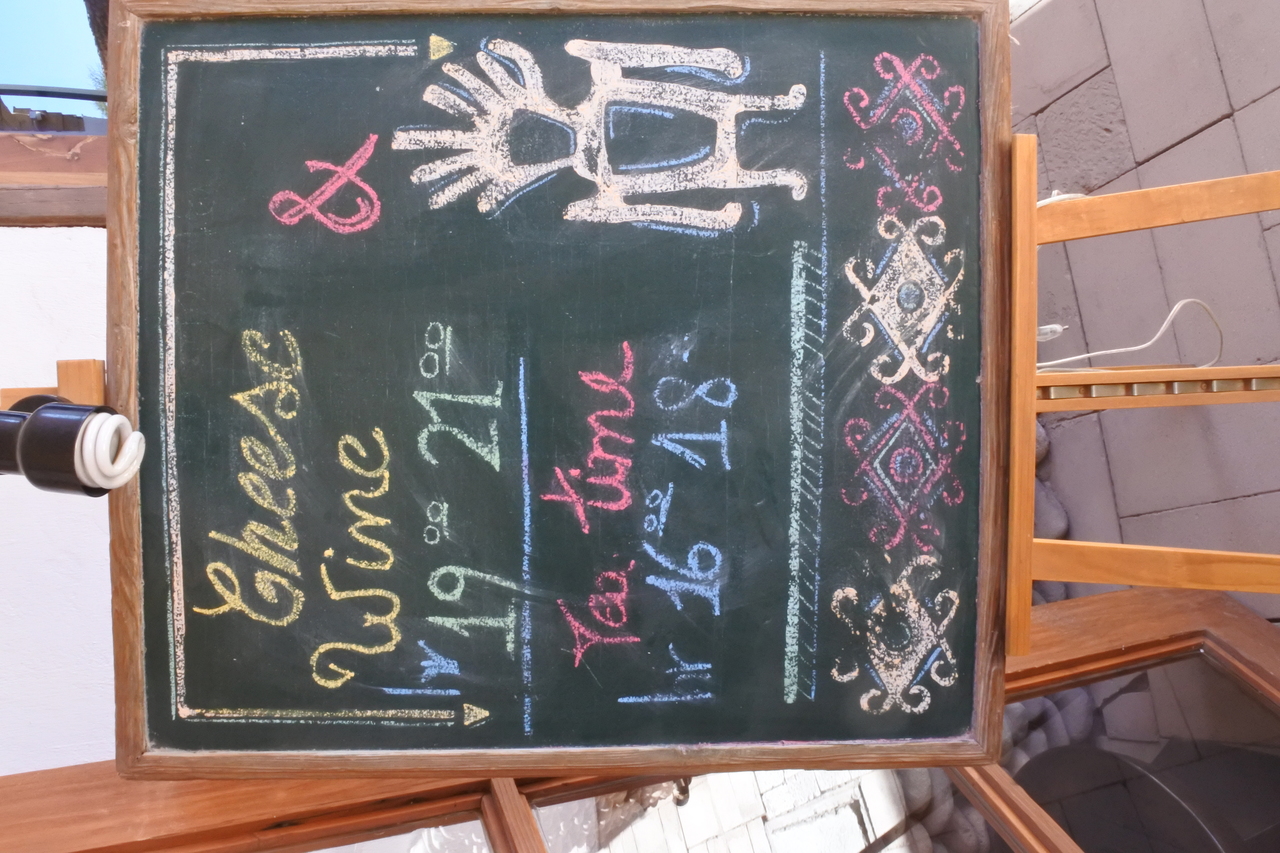 Cheese &
Wine
hr 19⁰⁰ 21⁰⁰
Tea time
hr 16⁰⁰ 18⁻